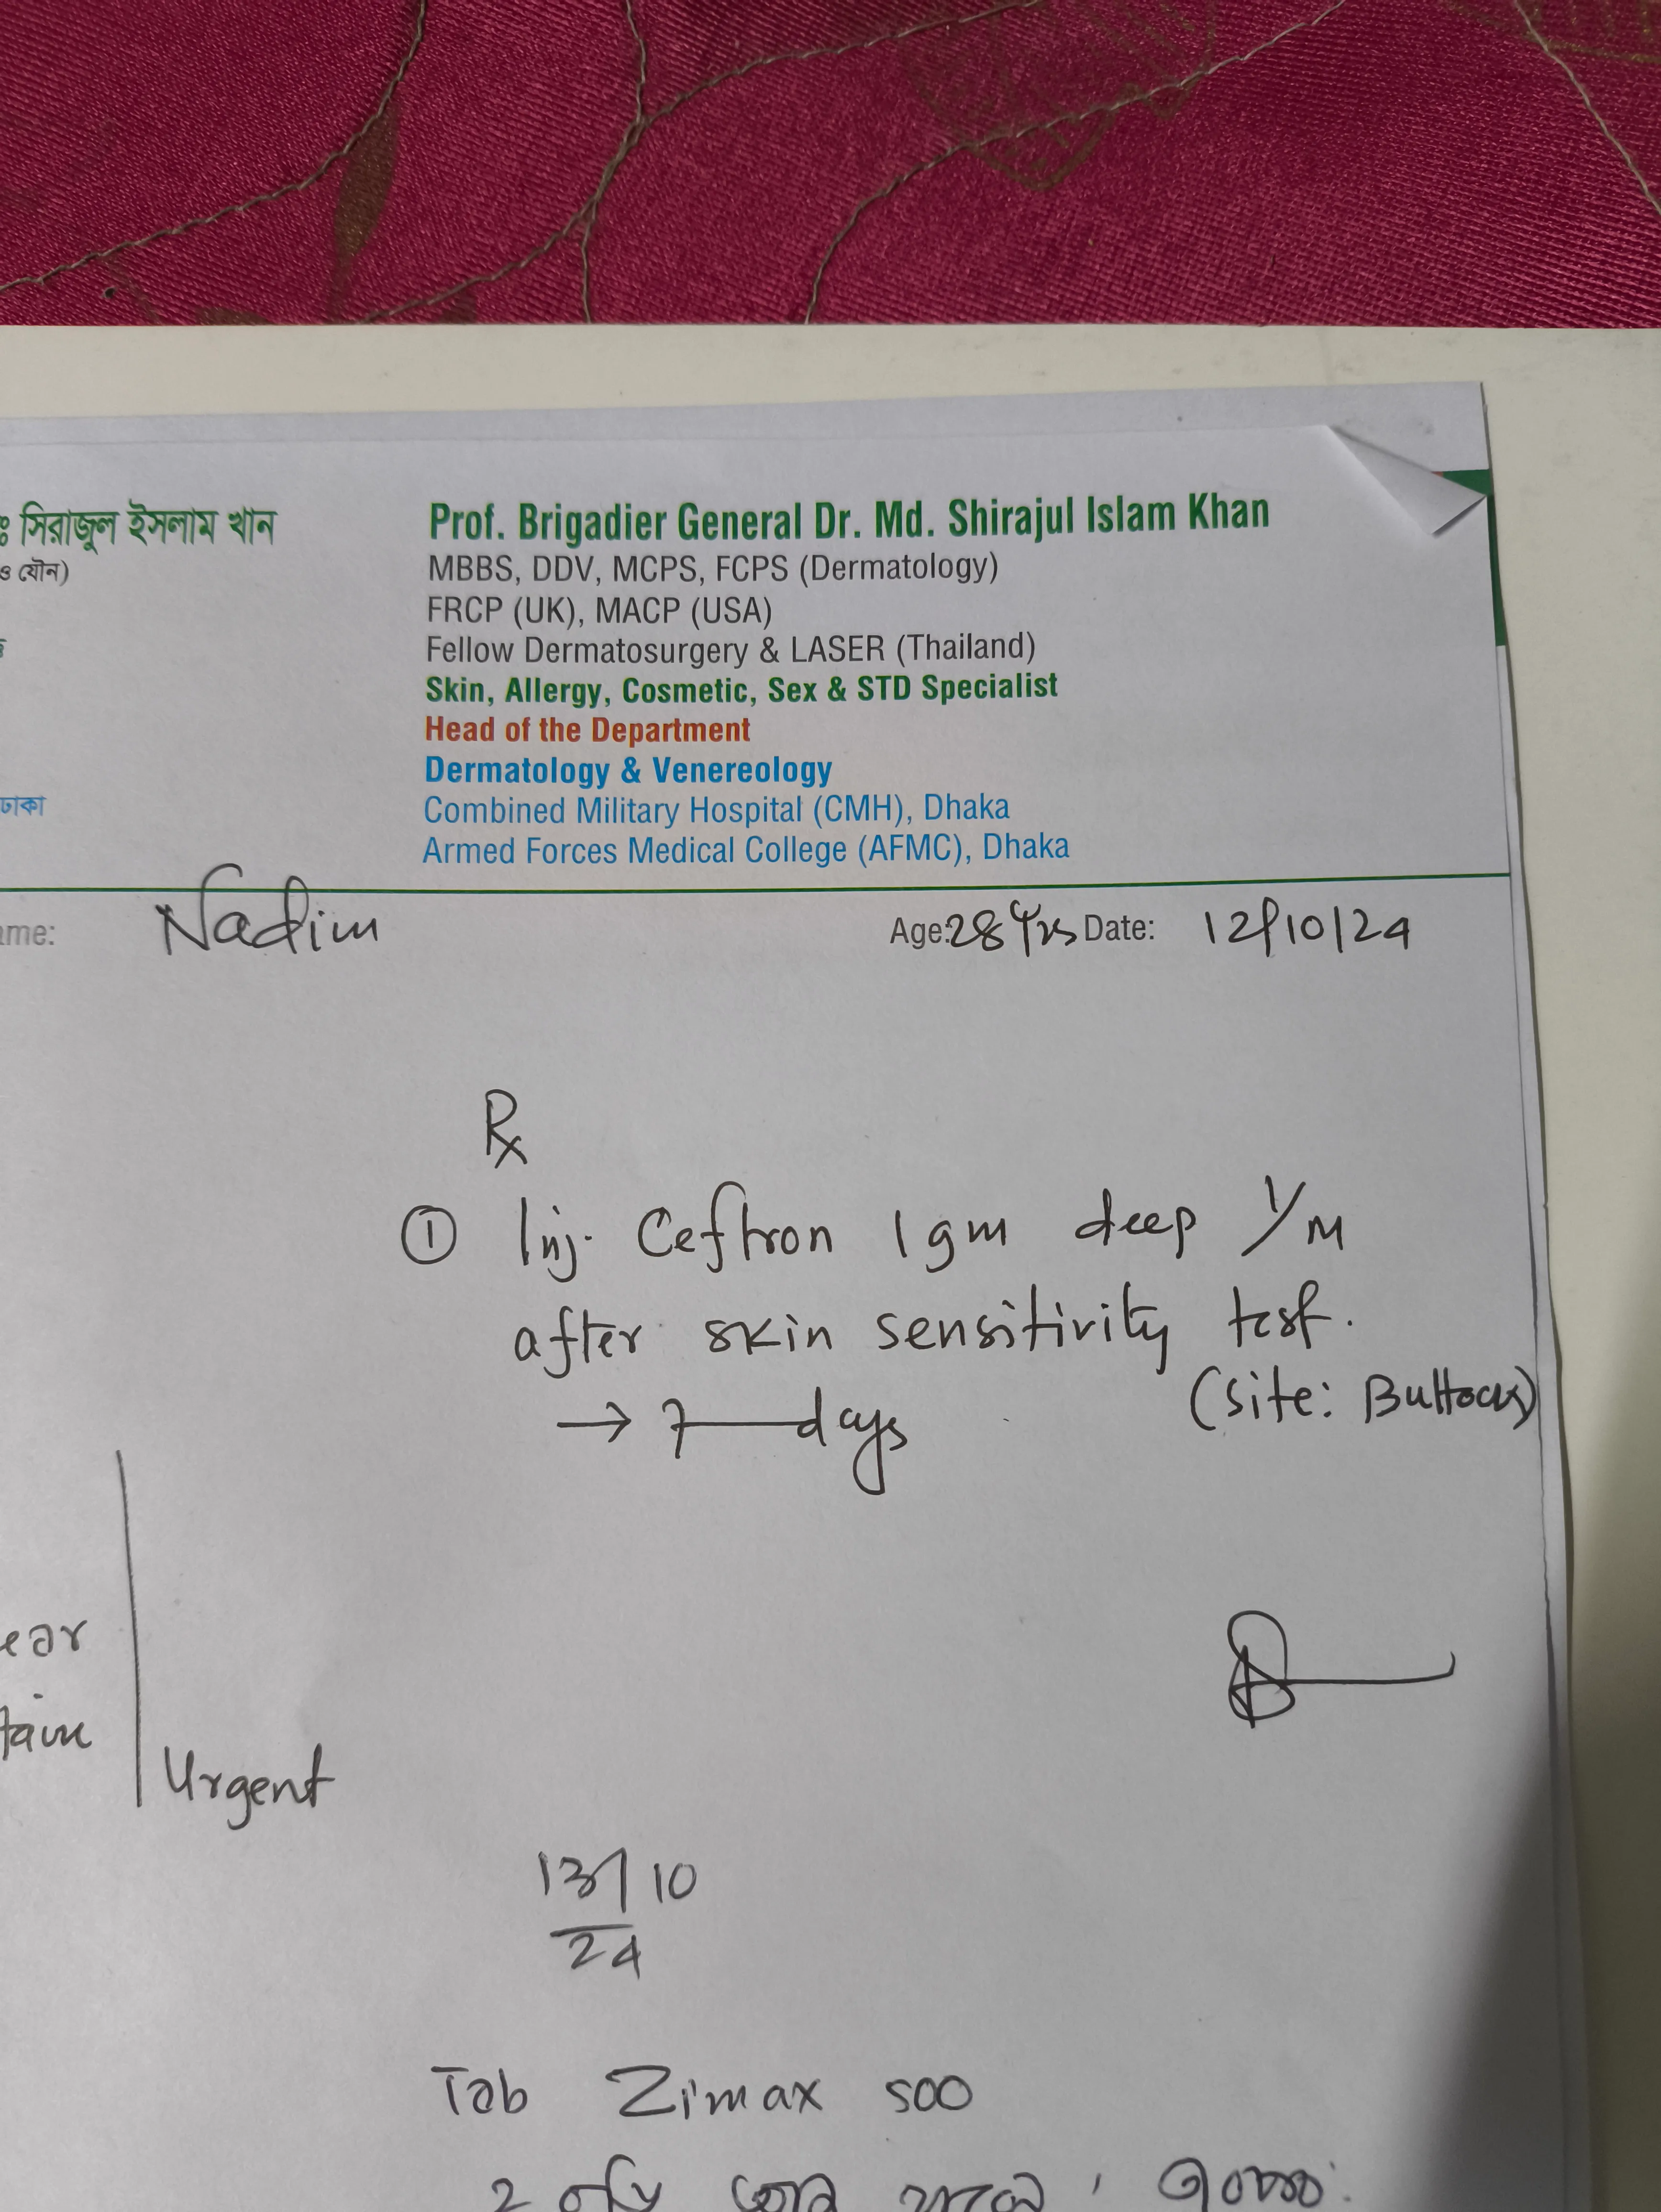 ঃ সিরাজুল ইসলাম খান
ও যৌন)
ঢাকা
Prof. Brigadier General Dr. Md. Shirajul Islam Khan
MBBS, DDV, MCPS, FCPS (Dermatology)
FRCP (UK), MACP (USA)
Fellow Dermatosurgery & LASER (Thailand)
Skin, Allergy, Cosmetic, Sex & STD Specialist
Head of the Department
Dermatology & Venereology
Combined Military Hospital (CMH), Dhaka
Armed Forces Medical College (AFMC), Dhaka
ame: Nadim Age: 28 Yrs Date: 12/10/24
Rx
① Inj. Ceftron 1 gm deep I/M
after skin sensitivity test.
(Site: Buttocks)
→ 7 days
ear
tain
Urgent
13/10
24
Tab Zimax 500
2